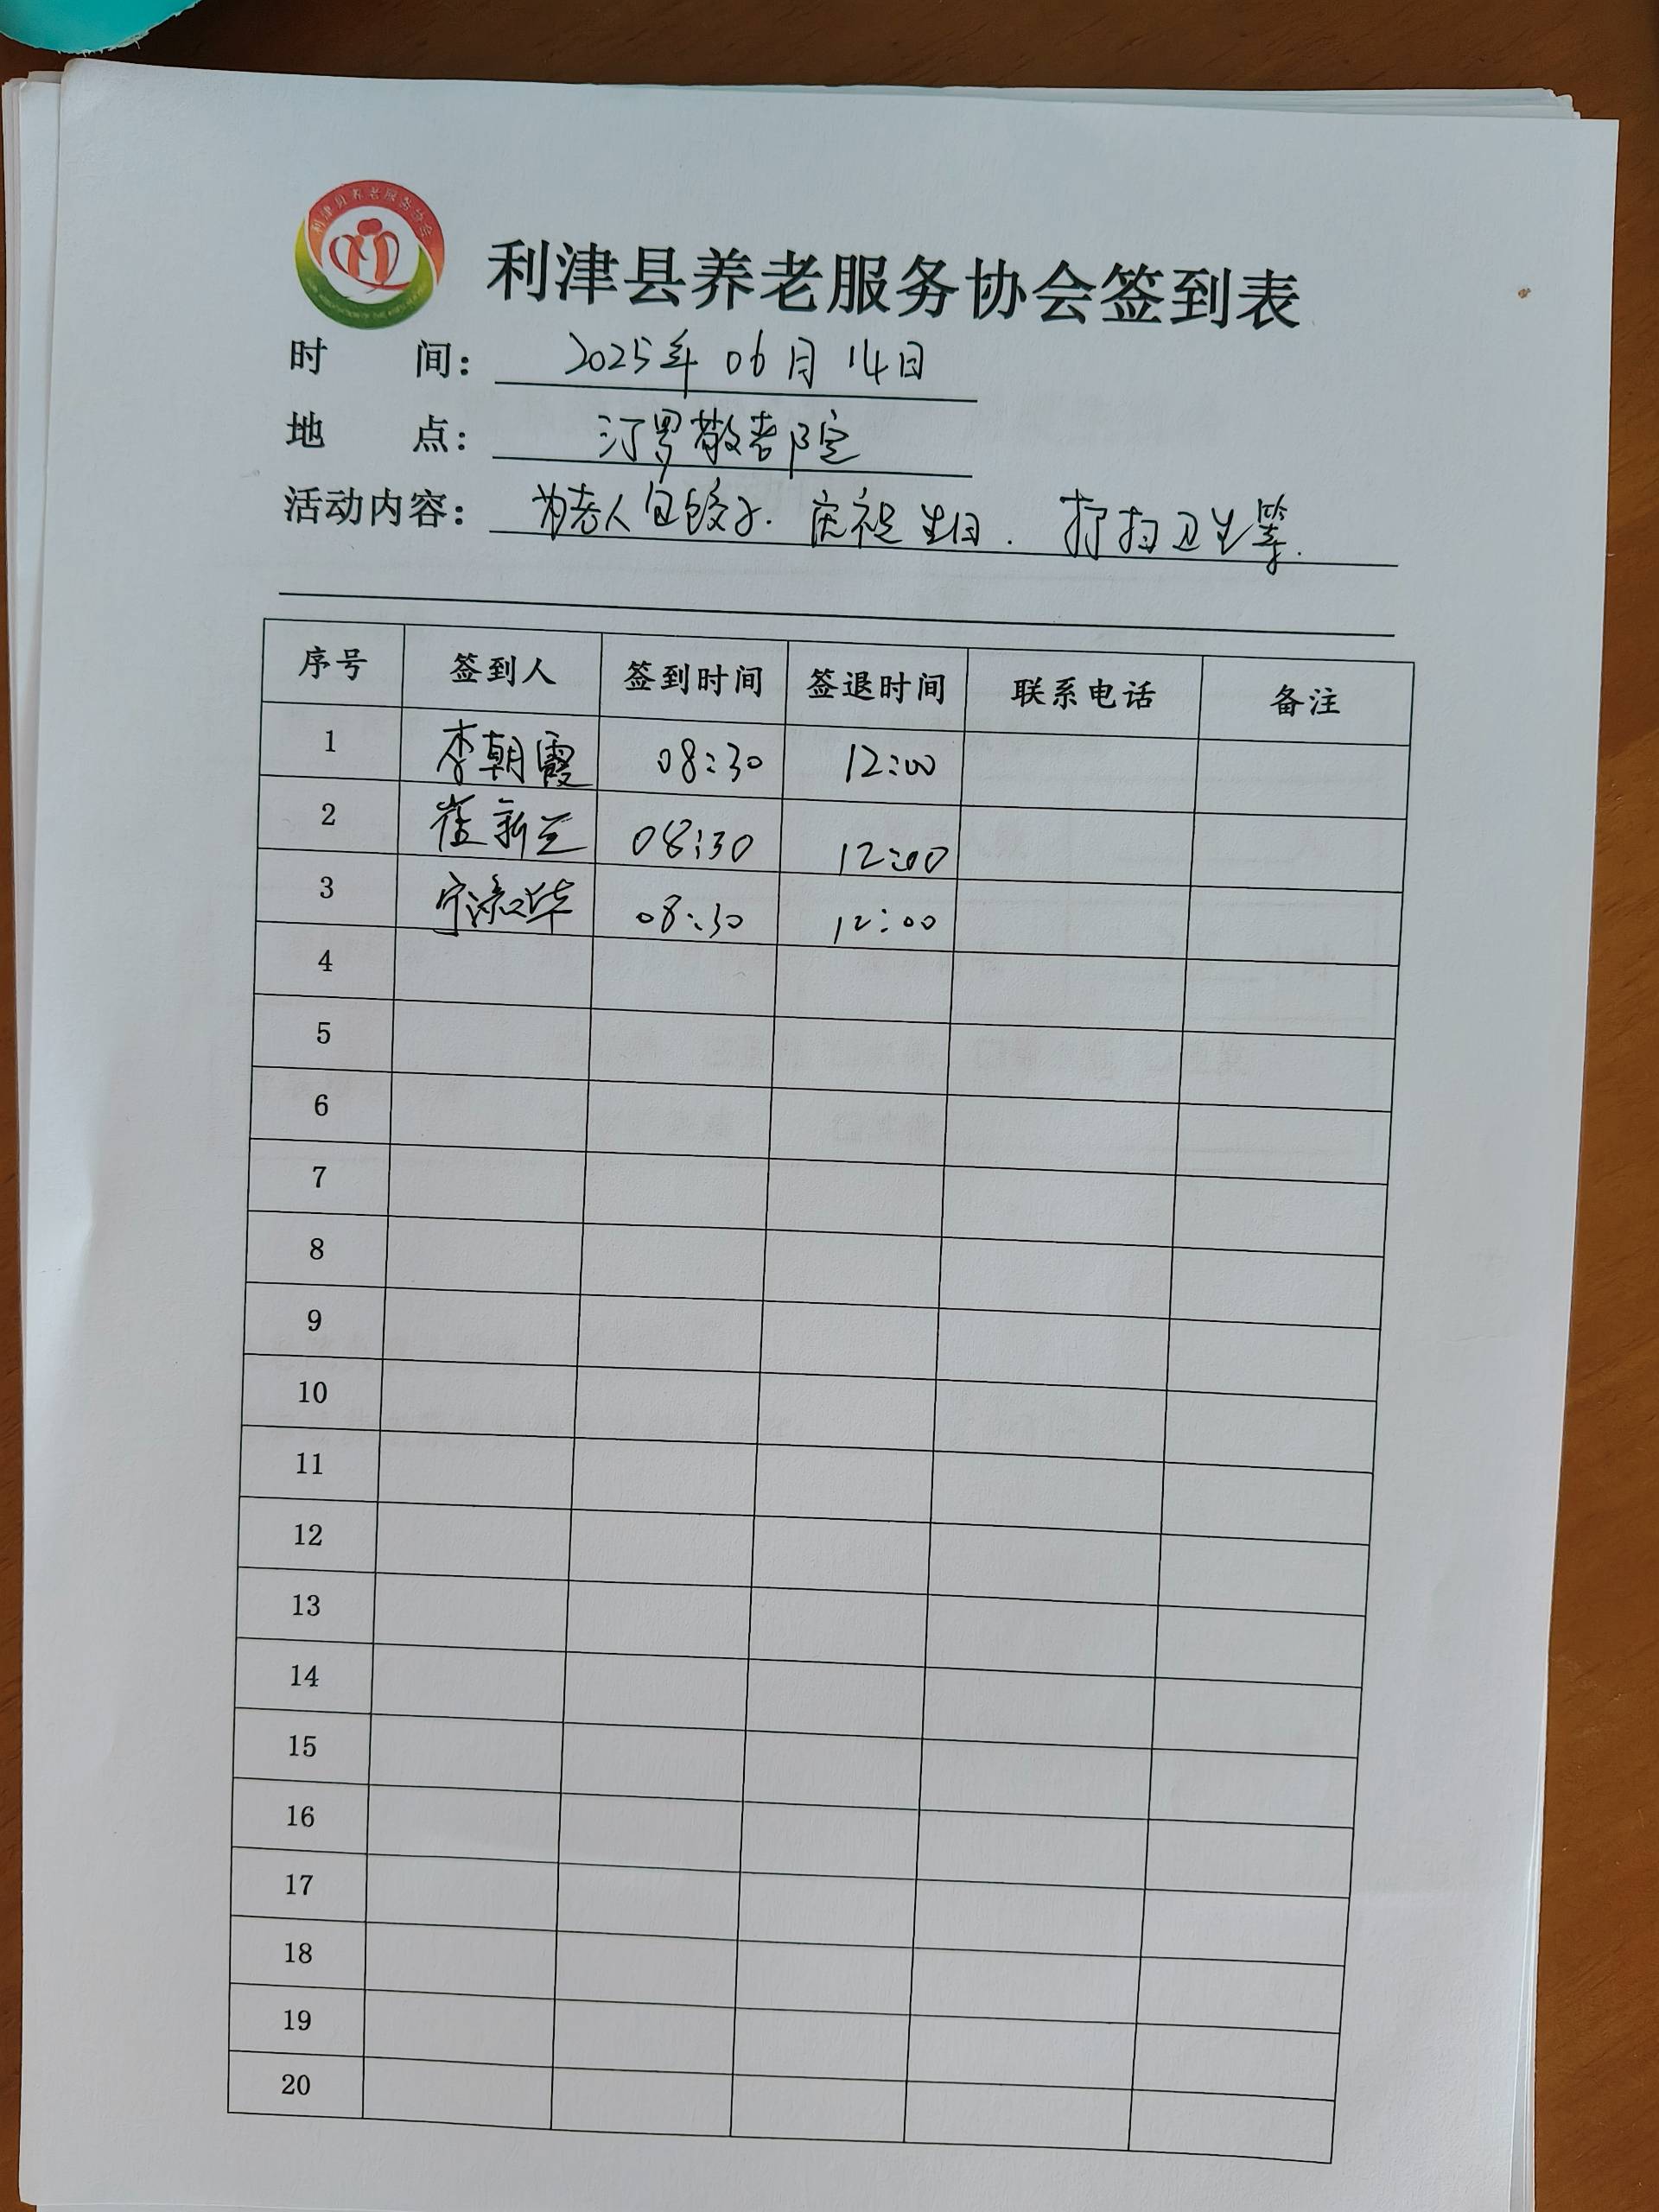 利津县养老服务协会
利津县养老服务协会签到表
时 间： 2025年06月14日
地 点： 汀罗敬老院
活动内容： 为老人包饺子. 庆祝生日. 打扫卫生等.
序号 签到人 签到时间 签退时间 联系电话 备注
1 李朝霞 08:30 12:00
2 崔新兰 08:30 12:00
3 宁淑华 08:30 12:00
4
5
6
7
8
9
10
11
12
13
14
15
16
17
18
19
20